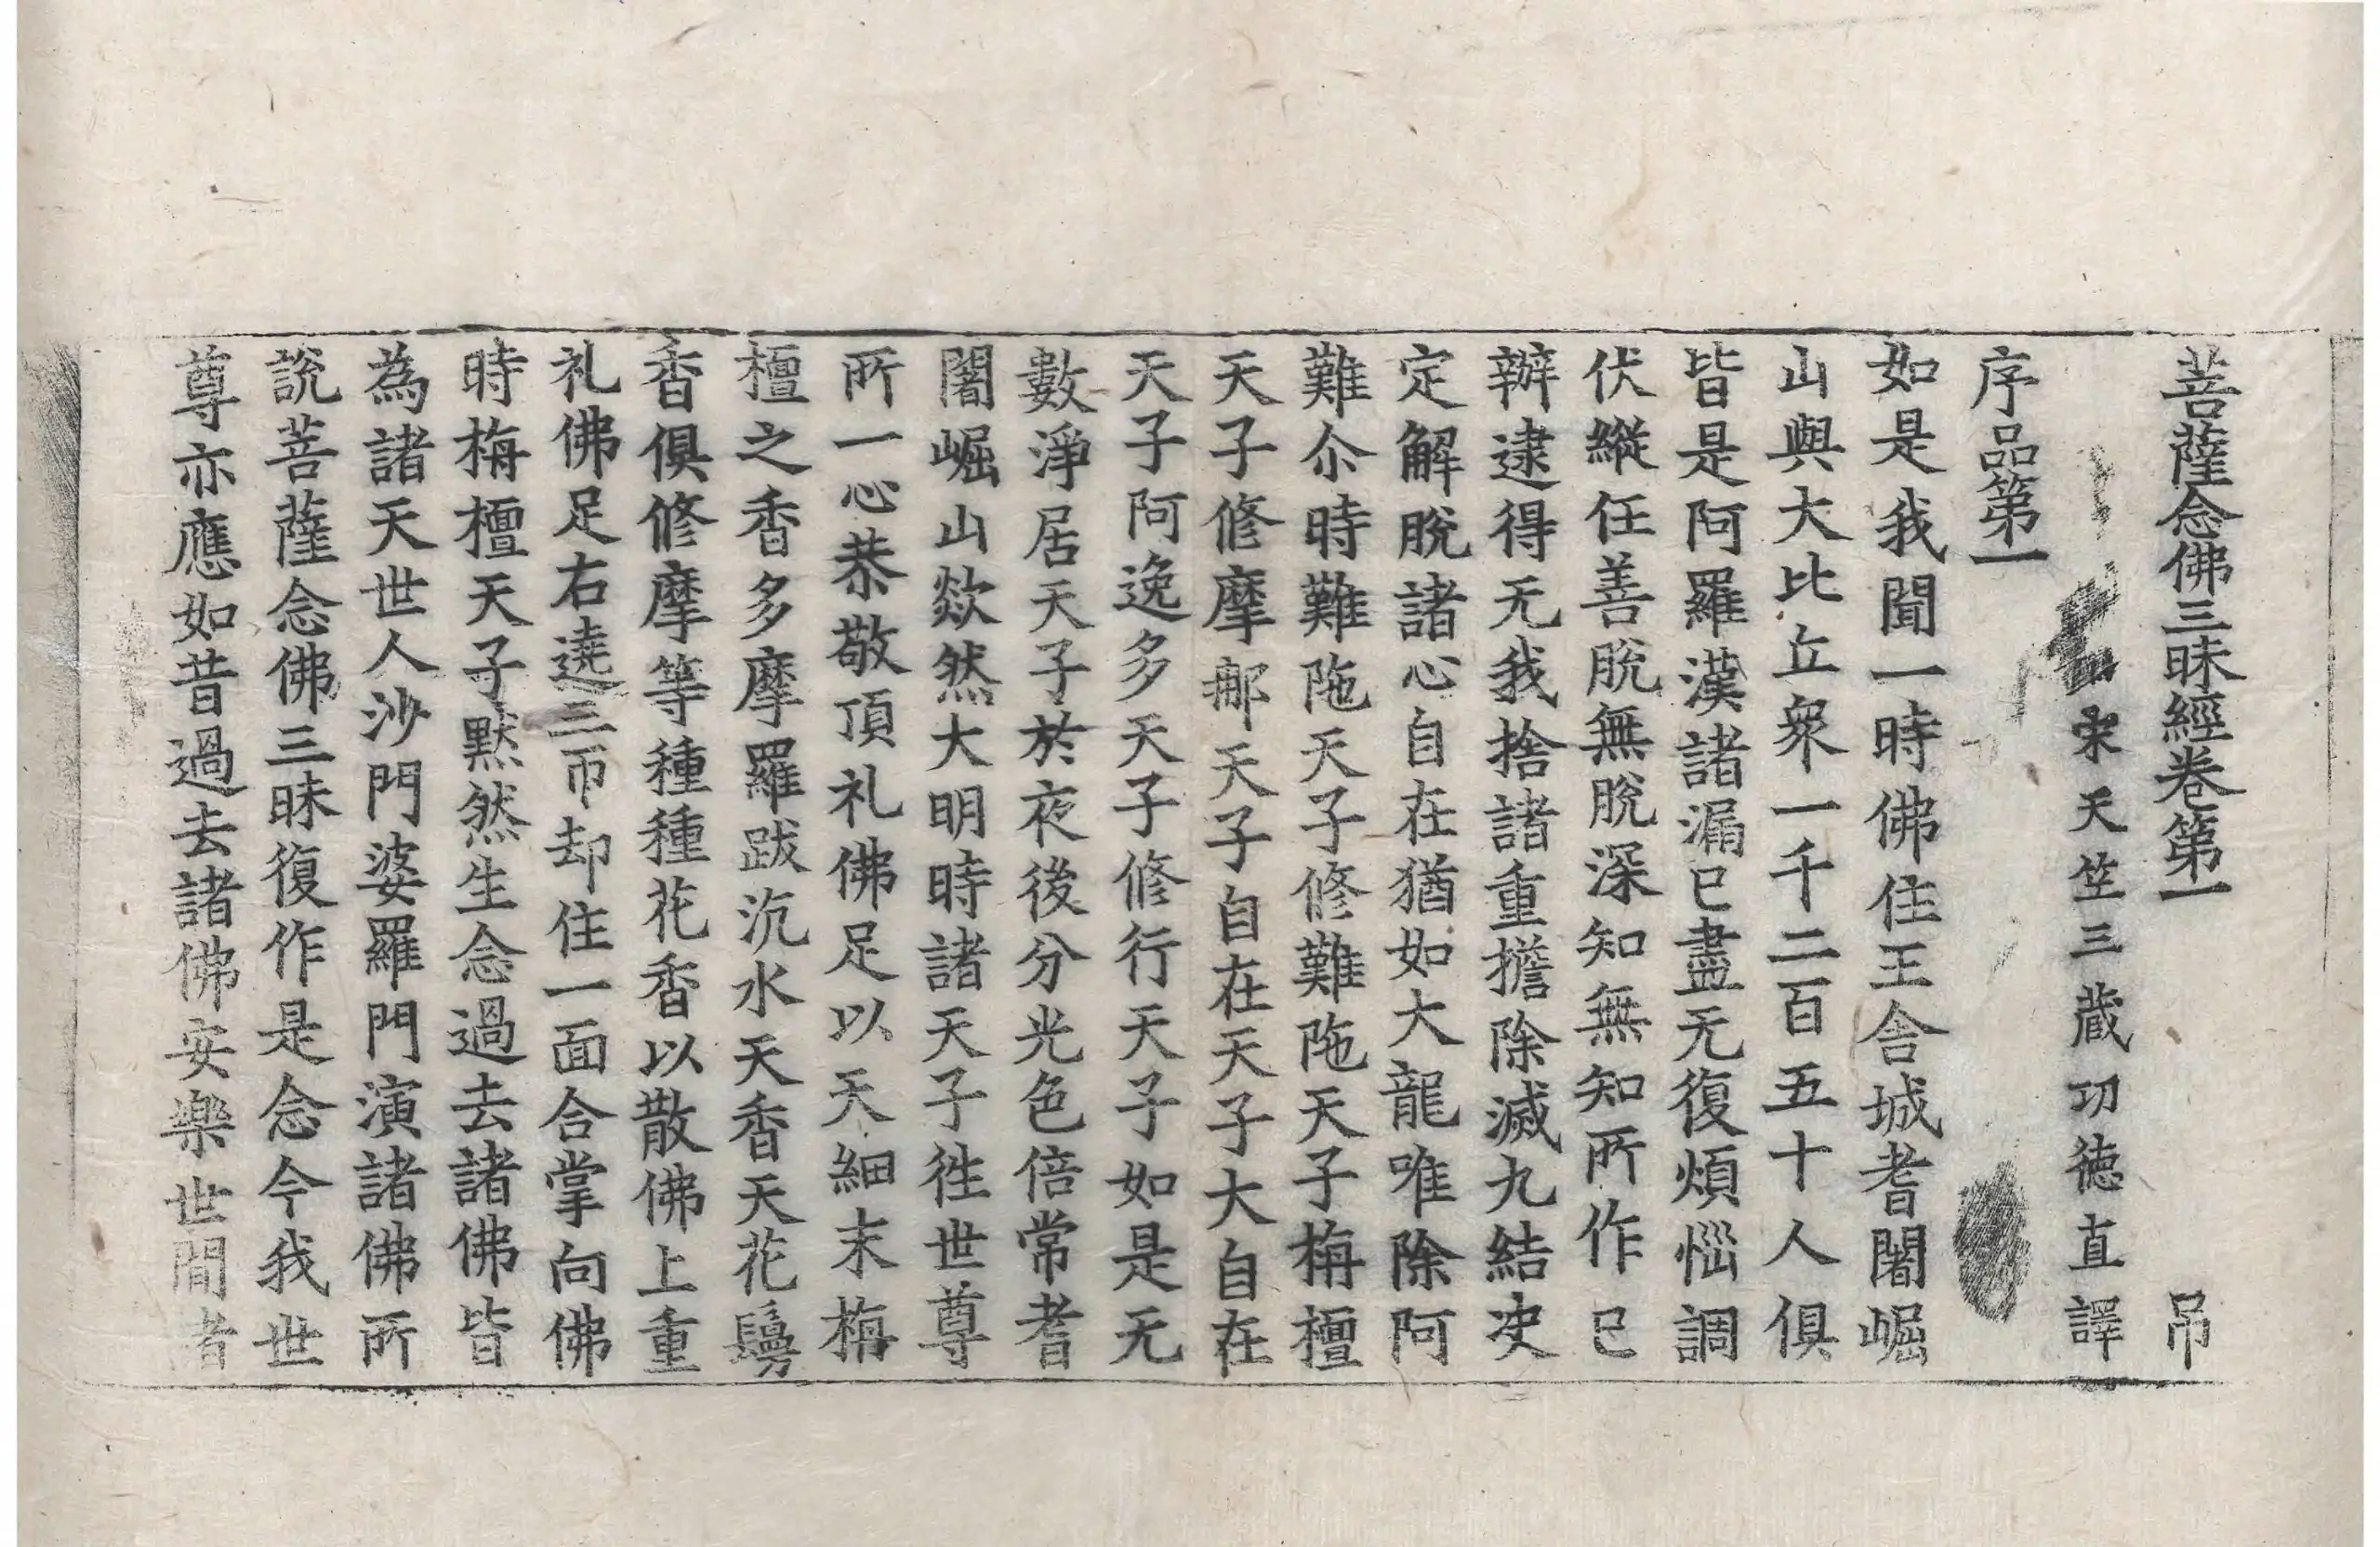 菩薩念佛三昧經卷第一 弔
宋天竺三藏功德直譯
序品第一
如是我聞一時佛住王舍城耆闍崛
山與大比丘衆一千二百五十人俱
皆是阿羅漢諸漏已盡无復煩惱調
伏縱任善脫無脫深知無知所作已
辦逮得无我捨諸重擔除滅九結決
定解脫諸心自在猶如大龍唯除阿
難尒時難陁天子修難陁天子栴檀
天子修摩那天子自在天子大自在
天子阿逸多天子修行天子如是无
數淨居天子於夜後分光色倍常耆
闍崛山歘然大明時諸天子徃世尊
所一心恭敬頂礼佛足以天細末栴
檀之香多摩羅跋沉水天香天花鬘
香俱修摩等種種花香以散佛上重
礼佛足右遶三帀却住一面合掌向佛
時栴檀天子默然生念過去諸佛皆
為諸天世人沙門婆羅門演諸佛所
說菩薩念佛三昧復作是念今我世
尊亦應如昔過去諸佛安樂世間者